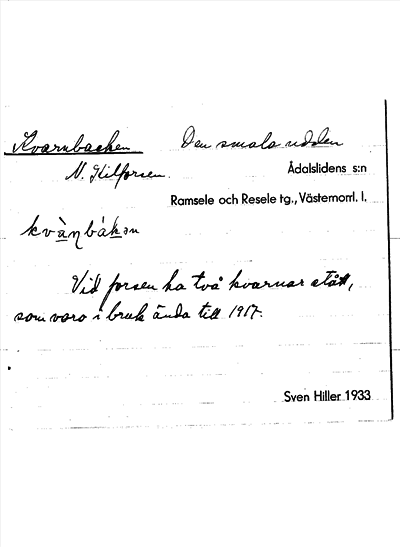 Kvarnbacken Den smala udden
N. Kilforsen. Ådalslidens s:n
Ramsele och Resele tg., Västernorrl. l.
kvà̠n̠bák̠ən
Vid forsen ha två kvarnar stått,
som voro i bruk ända till 1917.
Sven Hiller 1933